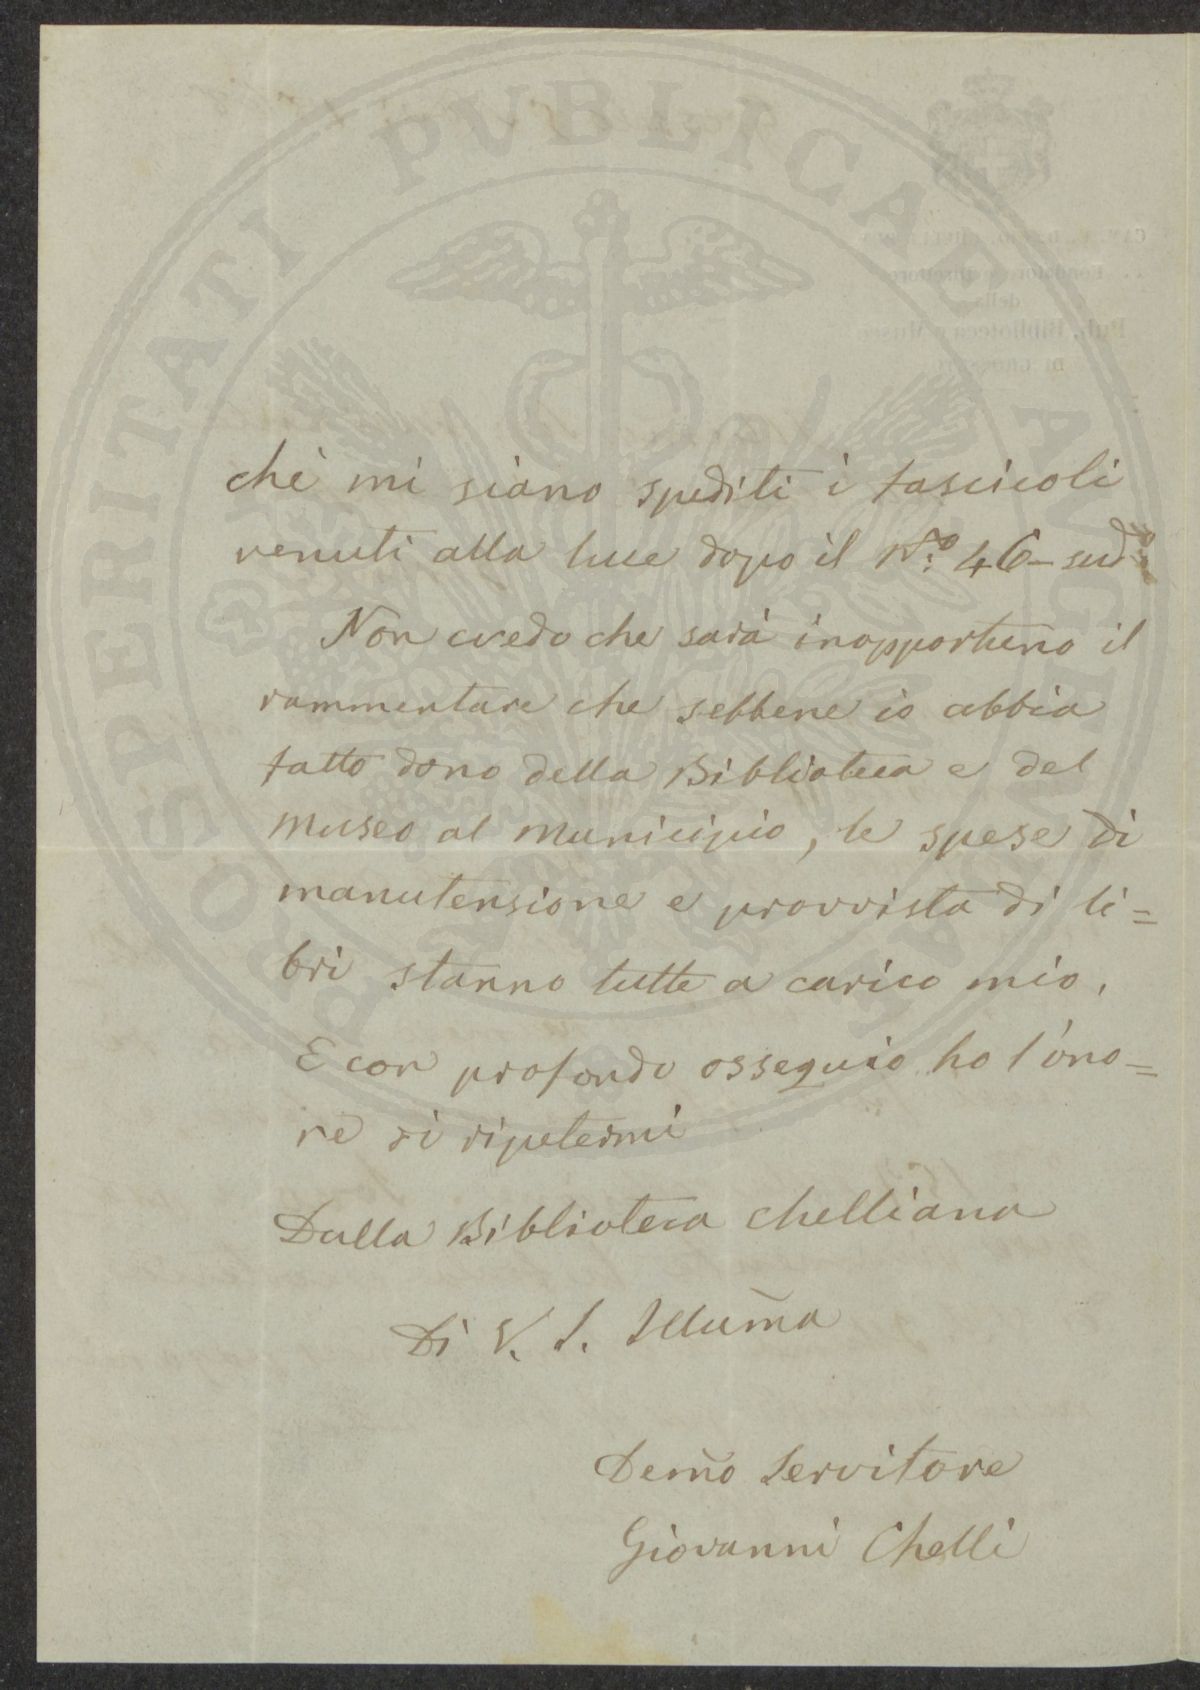 PROSPERITATI PVBLICAE AVGENDAE
chè mi siano spediti i fascicoli
venuti alla luce dopo il N.º 46 - sud.º
Non credo che sarà inopportuno il
rammentare che sebbene io abbia
fatto dono della Biblioteca e del
Museo al Municipio, le spese di
manutensione e provvista di li=
bri stanno tutte a carico mio.
E con profondo ossequio ho l'ono=
re di ripetermi
Dalla Biblioteca Chelliana
Di V. S. Illum̃a
Dem̃o Servitore
Giovanni Chelli